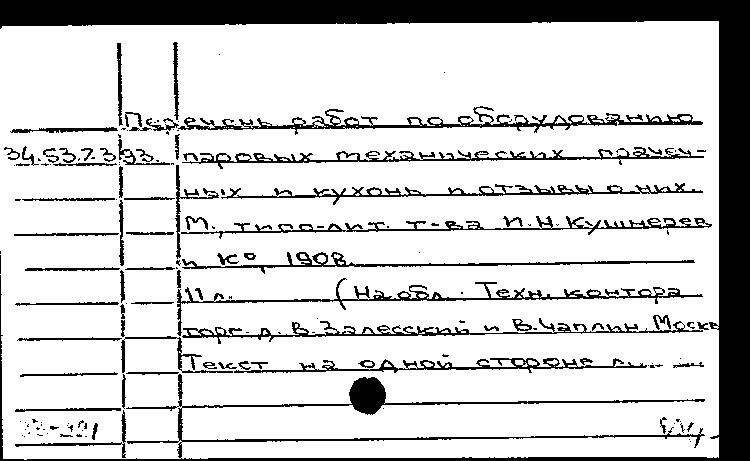 Перечень работ по оборудованию
34.53.7.3.93. паровых механических прачеч-
ных и кухонь и отзывы о них.
М., типо-лит. т-ва И.Н. Кушнерев
и К°, 1908.
11 л. (На обл.: Техн. контора
торг. д. В. Залесский и В. Чаплин. Москв
Текст на одной стороне л.